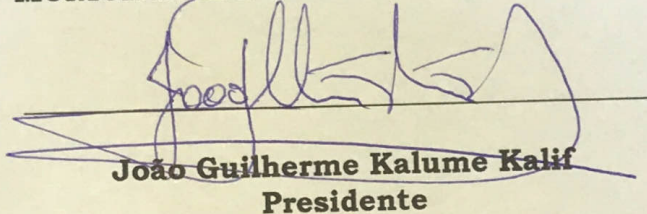 João Guilherme Kalume Kalif
Presidente